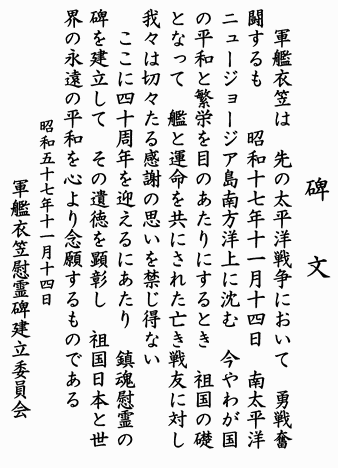 碑文
軍艦衣笠は 先の太平洋戦争において 勇戦奮
闘するも 昭和十七年十一月十四日 南太平洋
ニュージョージア島南方洋上に沈む 今やわが国
の平和と繁栄を目のあたりにするとき 祖国の礎
となって 艦と運命を共にされた亡き戦友に対し
我々は切々たる感謝の思いを禁じ得ない
ここに四十周年を迎えるにあたり 鎮魂慰霊の
碑を建立して その遺徳を顕彰し 祖国日本と世
界の永遠の平和を心より念願するものである
昭和五十七年十一月十四日
軍艦衣笠慰霊碑建立委員会